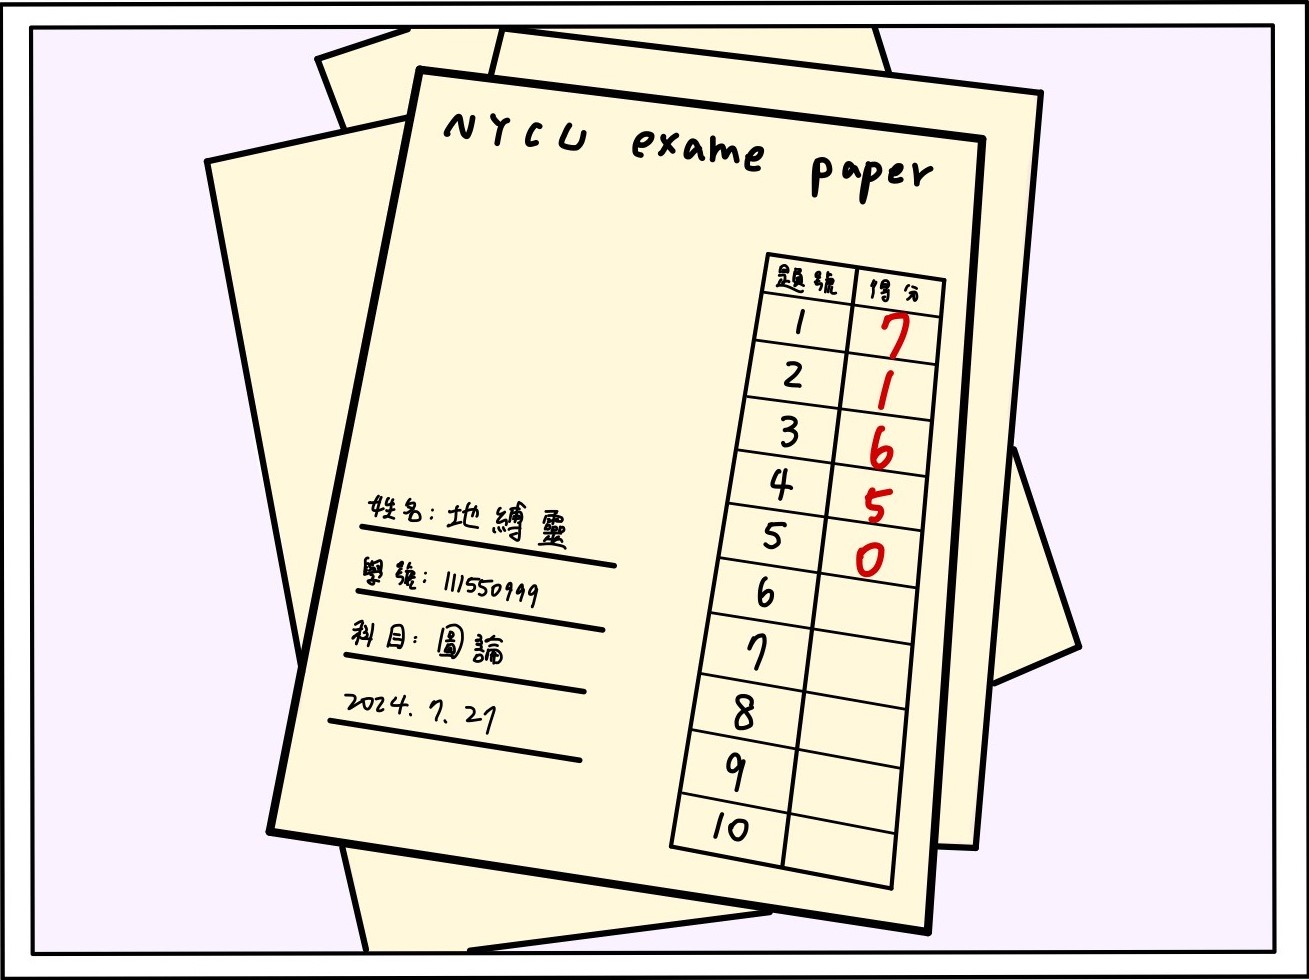 NYCU exame paper
題號 得分
1 7
2 1
3 6
4 5
5 0
6
7
8
9
10
姓名: 地縛靈
學號: 111550999
科目: 圖論
2024. 7. 27